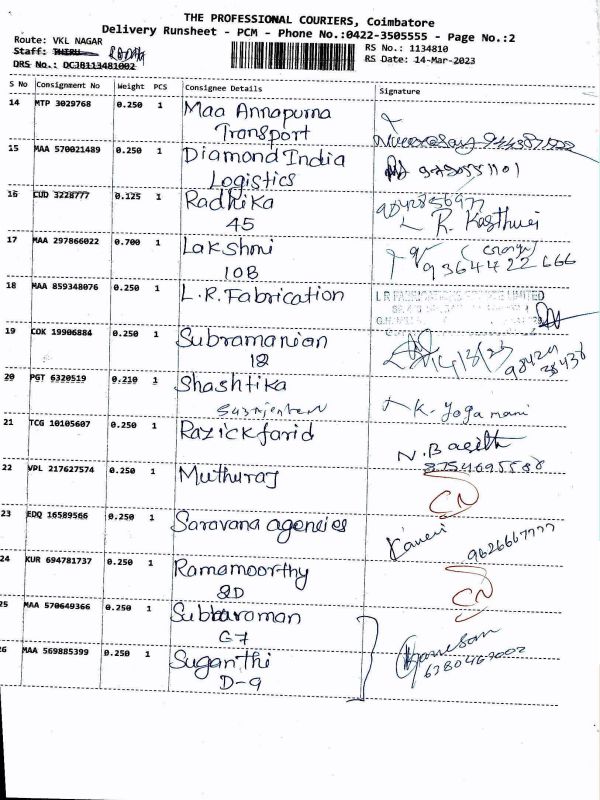 THE PROFESSIONAL COURIERS, Coimbatore
Delivery Runsheet - PCM - Phone No.:0422-3505555 - Page No.:2
Route: VKL NAGAR
RS No.: 1134810
Staff:
RS Date: 14-Mar-2023
DRS No.: DCJB113481002
S No Consignment No Weight PCS Consignee Details Signature
14 MTP 3029768 0.250 1 Maa Annapurna
Transport
15 MAA 570021489 0.250 1 Diamond India
Logistics
16 CUD 3228777 0.125 1 Radhika
45 R. Kasthuri
17 MAA 297866022 0.700 1 Lakshmi
10B 9364422666
18 MAA 859348076 0.250 1 L.R. Fabrication
19 COK 19906884 0.250 1 Subramanian
12 14/3/23
20 PGT 6320519 0.210 1 Shashtika
K. Yogamani
21 TCG 10105607 0.250 1 Razickfarid
N. Baseith
8754695588
22 VPL 217627574 0.250 1 Muthuraj CN
23 EDQ 16589566 0.250 1 Saravana agencies Kaveri 9626667777
24 KUR 694781737 0.250 1 Ramamoorthy
8D CN
25 MAA 570649366 0.250 1 Subbaraman
G7
26 MAA 569885399 0.250 1 Suganthi Ganesan
D-9